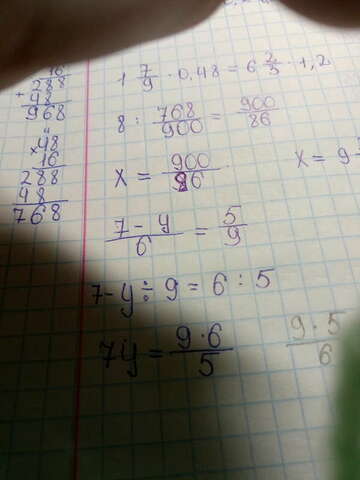 16
288
+ 48
968
×48
16
288
48
768
1 7/9 · 0,48 = 6 2/5 · 1,2
8 : 768/900 = 900/86
x = 900/96
x = 9
7 - y/6 = 5/9
7 - y ÷ 9 = 6 : 5
7y = 9 · 6/5
9 · 5/6